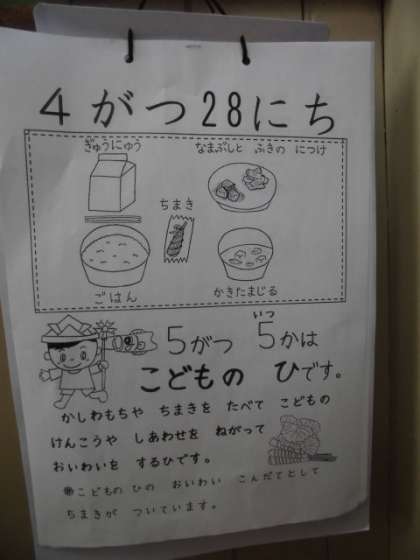 4がつ28にち
ぎゅうにゅう
なまぶしと ふきの につけ
ちまき
ごはん
かきたまじる
いつ
5がつ 5かは
こどもの ひです。
かしわもちや ちまきを たべて こどもの
けんこうや しあわせを ねがって
おいわいを するひです。
※こどもの ひの おいわい こんだてとして
ちまきが ついています。